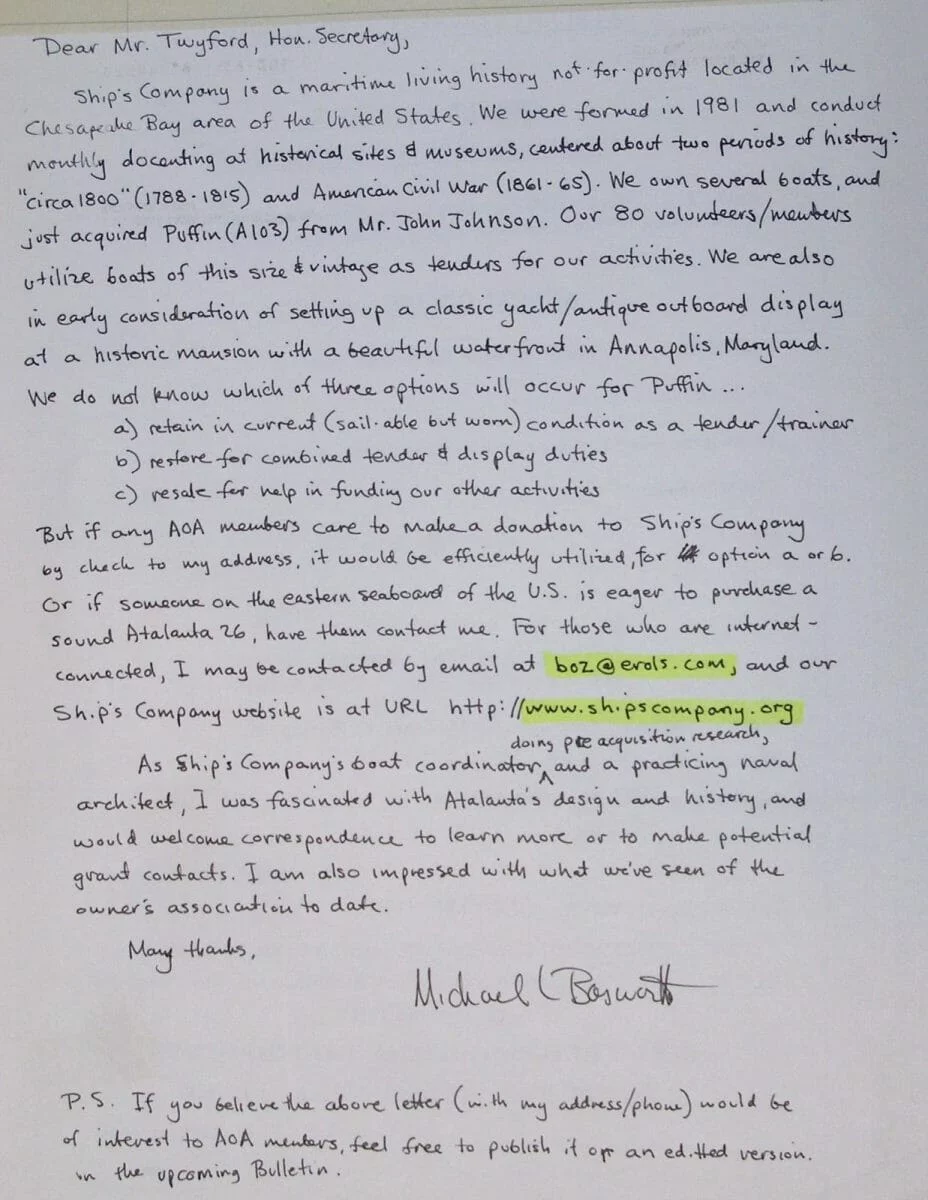 Dear Mr. Twyford, Hon. Secretary,
Ship's Company is a maritime living history not-for-profit located in the
Chesapeake Bay area of the United States. We were formed in 1981 and conduct
monthly docenting at historical sites & museums, centered about two periods of history:
"circa 1800" (1788-1815) and American Civil War (1861-65). We own several boats, and
just acquired Puffin (A103) from Mr. John Johnson. Our 80 volunteers/members
utilize boats of this size & vintage as tenders for our activities. We are also
in early consideration of setting up a classic yacht/antique outboard display
at a historic mansion with a beautiful waterfront in Annapolis, Maryland.
We do not know which of three options will occur for Puffin ...
a) retain in current (sail-able but worn) condition as a tender/trainer
b) restore for combined tender & display duties
c) resale for help in funding our other activities
But if any AOA members care to make a donation to Ship's Company
by check to my address, it would be efficiently utilized, for option a or b.
Or if someone on the eastern seaboard of the U.S. is eager to purchase a
sound Atalanta 26, have them contact me. For those who are internet-
connected, I may be contacted by email at boz@erols.com, and our
Ship's Company website is at URL http://www.shipscompany.org
doing pre acquisition research,
As Ship's Company's boat coordinator ^ and a practicing naval
architect, I was fascinated with Atalanta's design and history, and
would welcome correspondence to learn more or to make potential
grant contacts. I am also impressed with what we've seen of the
owner's association to date.
Many thanks,
Michael L Bosworth
P.S. If you believe the above letter (with my address/phone) would be
of interest to AOA members, feel free to publish it or an editted version.
in the upcoming Bulletin.